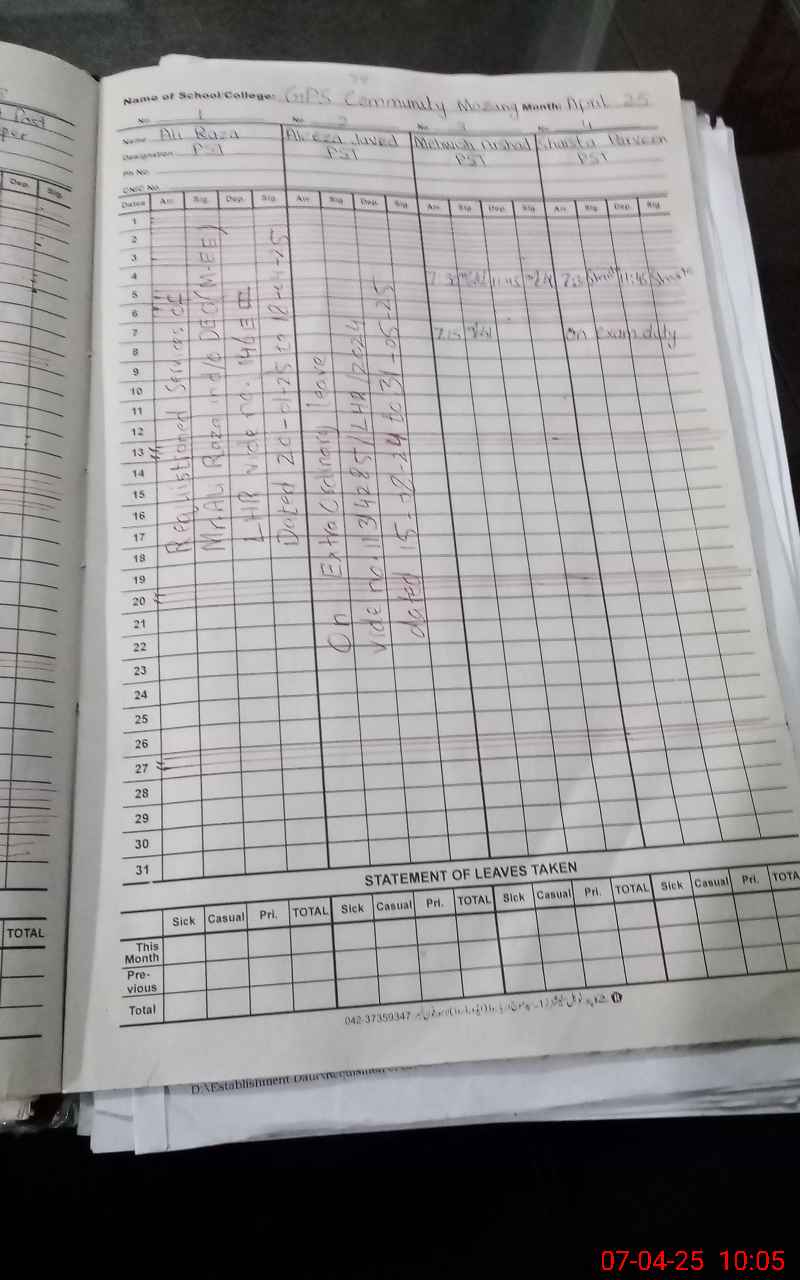 Name of School/College: GPS Community Mozang Month: April 25
No. 1 No. 2 No. 3 No. 4
Name Ali Raza Aleeza Javed Mehwish Arshad Shaista Parveen
Designation PST PST PST PST
Ph No.
CNIC No.
Dates Arr. Sig. Dep. Sig. Arr. Sig. Dep. Sig. Arr. Sig. Dep. Sig. Arr. Sig. Dep. Sig.
1
2
3
4 11:45 11:45
5
6
7 On Exam duty
8
9
10
11
12
13
14
15
16
17
18
19
20
21
22
23
24
25
26
27
28
29
30
31
Requistioned Services of
Mr. Ali Raza ind/o DEO (M-EE)
LHR vide no. 146/E-III
Dated 20-01-25 to
On Extra Ordinary leave
vide no. /LHR/2024
dated to 31-05-25
STATEMENT OF LEAVES TAKEN
Sick Casual Pri. TOTAL Sick Casual Pri. TOTAL Sick Casual Pri. TOTAL Sick Casual Pri. TOTA
This Month
Pre-vious
Total
042-37359347
TOTAL
Dep. Sig.
D:\Establishment
07-04-25 10:05